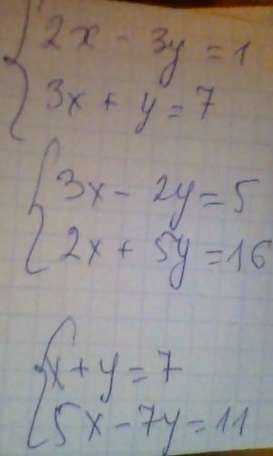 2x - 3y = 1
3x + y = 7
3x - 2y = 5
2x + 5y = 16
x + y = 7
5x - 7y = 11